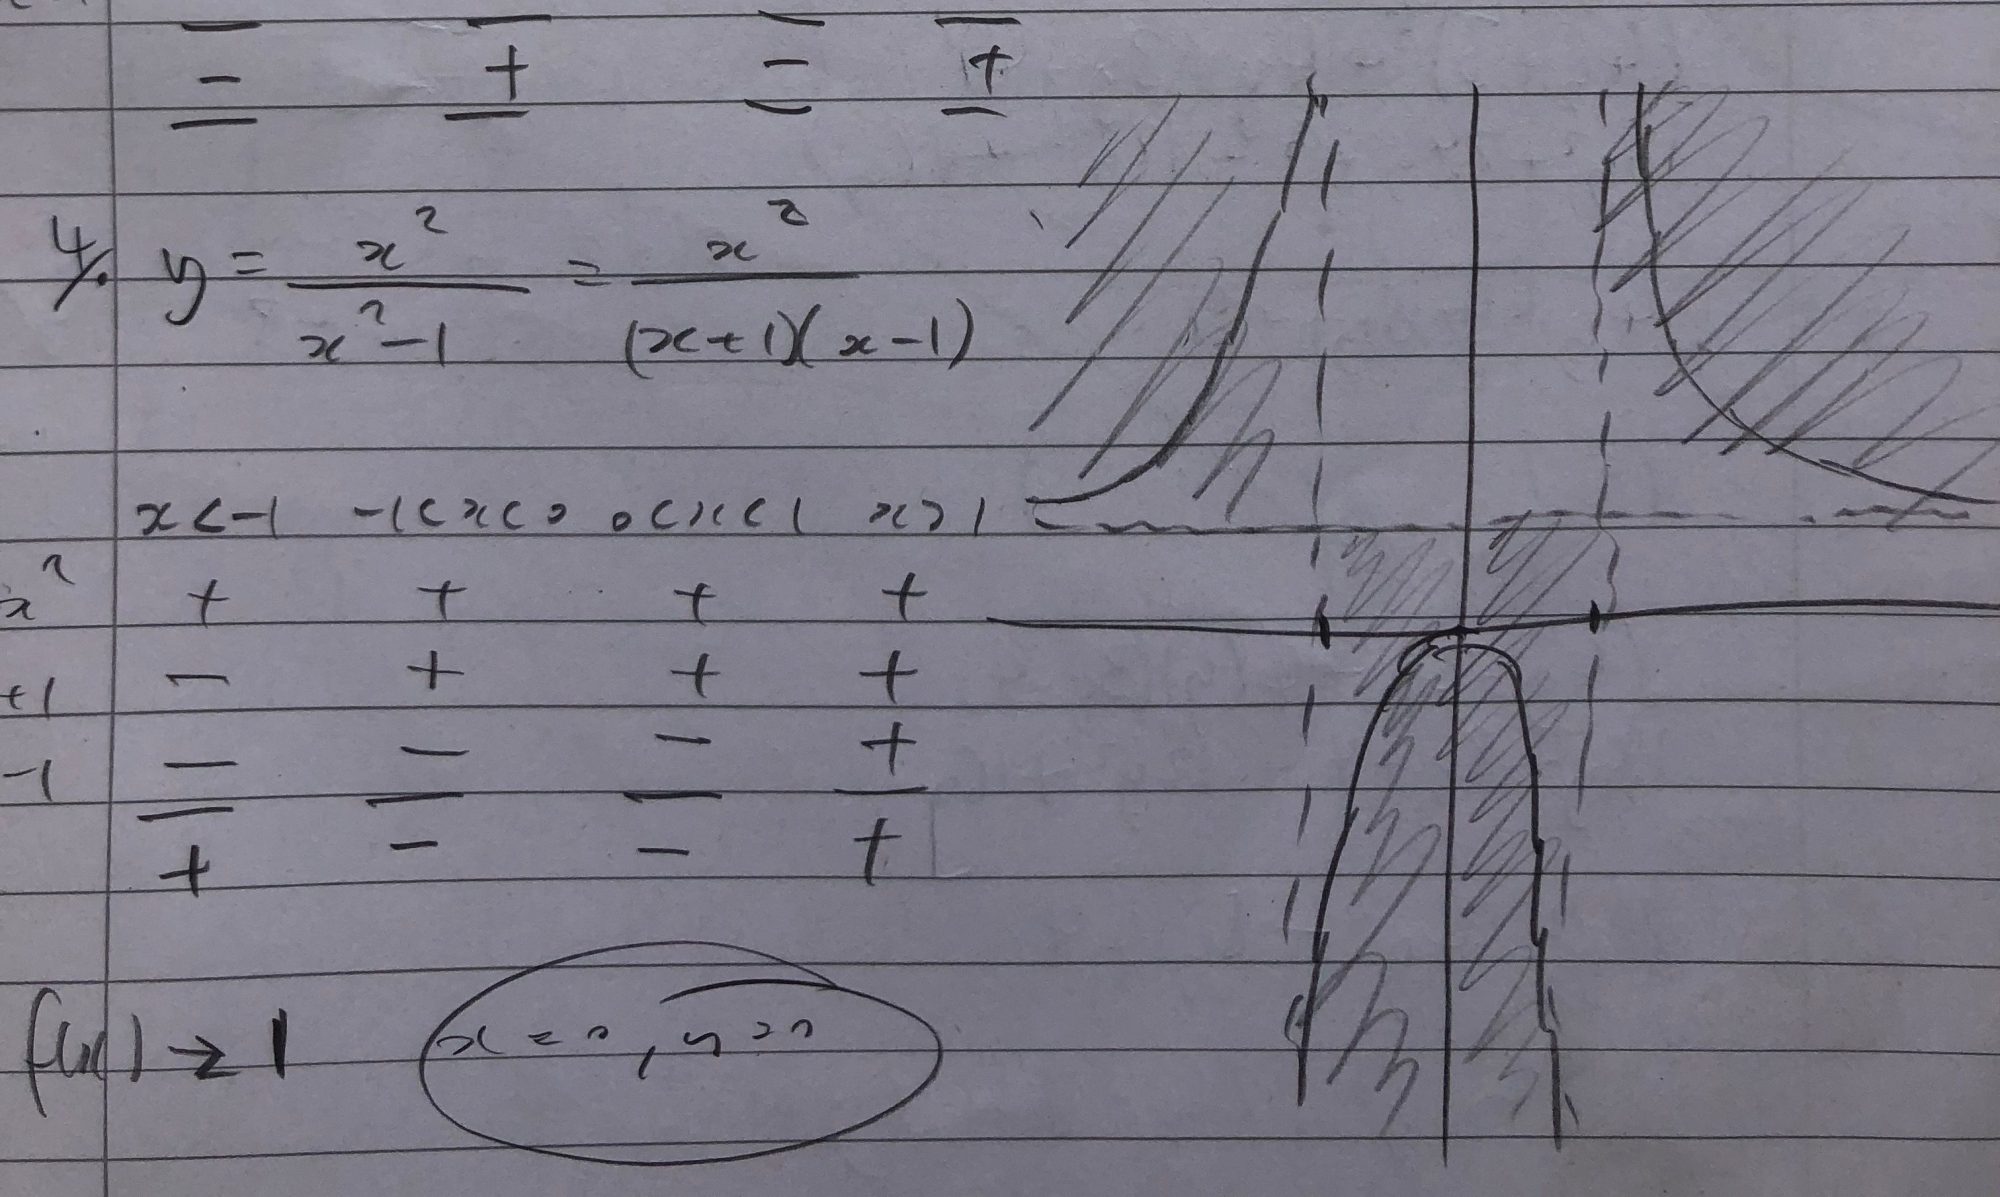 - + - +
4/. y = x² / x²-1 = x² / (x+1)(x-1)
x<-1 -1<x<0 0<x<1 x>1
x² + + + +
+1 - + + +
-1 - - - +
+ - - +
f(x) → 1 x=0, y=0